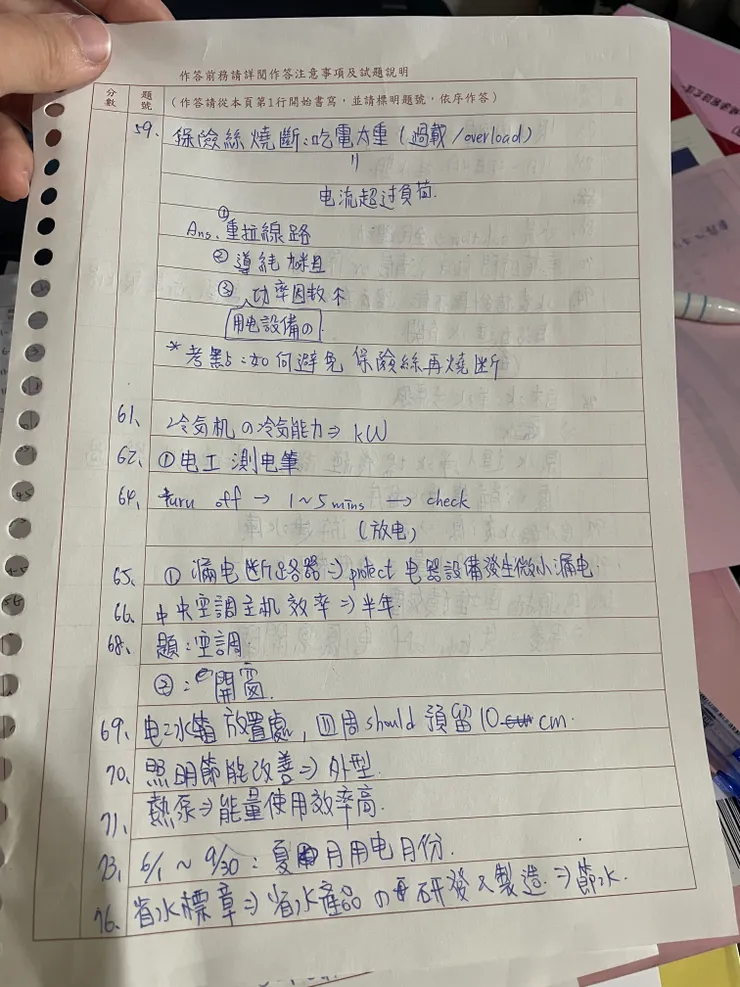 作答前務請詳閱作答注意事項及試題說明
分數 題號 (作答請從本頁第1行開始書寫,並請標明題號,依序作答)
59. 保險絲燒斷:吃電太重(過載/overload)
=
电流超过負荷.
Ans. ①重拉線路
②導純加粗
③功率因數不
用电設備の
*考點:如何避免保險絲再燒斷
61、冷気机の冷気能力⇒kW
62、①电工測电筆
64、turu off → 1~5 mins → check
(放电)
65、①漏电断路器⇒protect 电器設備發生微小漏电.
66、中央空調主机效率⇒半年.
68、題:空調.
②:開窗.
69、电冰箱放置處,四周should預留10 cm.
70、照明節能改善⇒外型.
71、熱泵⇒能量使用效率高.
73、6/1~9/30:夏月用电月份.
76、省水標章⇒省水產品の研發及製造.⇒節水.